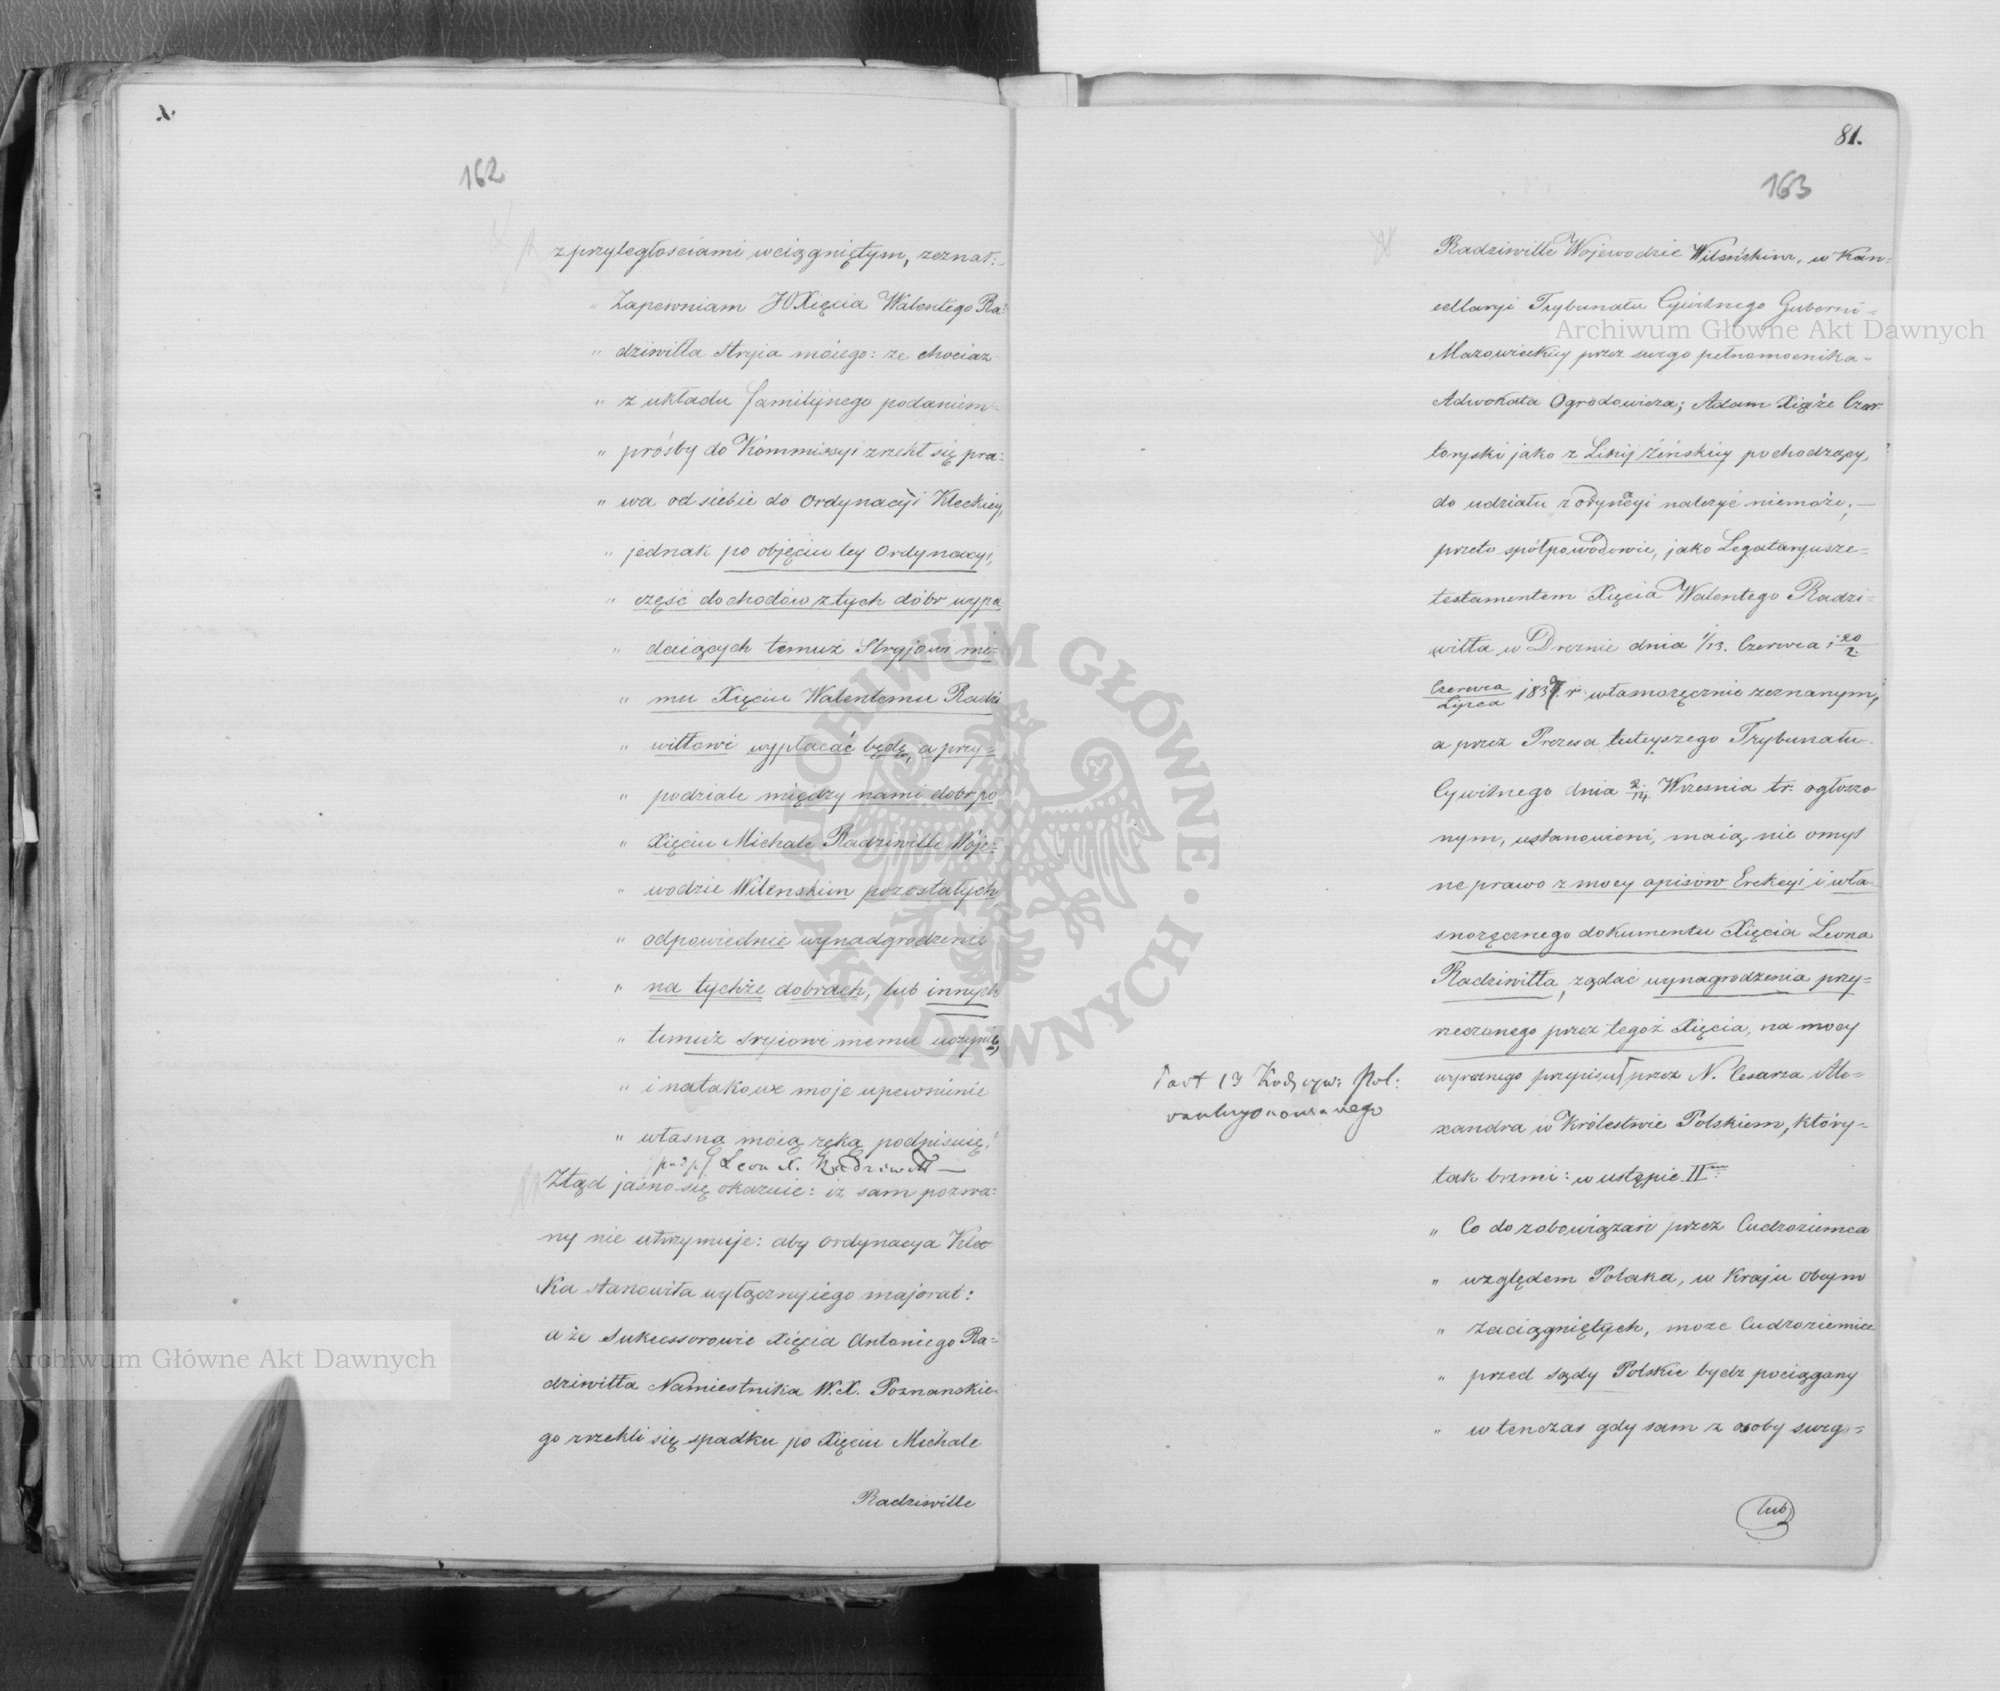 162
z przyległościami wciągniętym, zeznał:
" Zapewniam JOXięcia Walentego Ra:
" dziwiłła Stryia móiego: że chociaż
" z układu familijnego podaniem
" próśby do Kommissyi zrzekł się pra:
" wa od siebie do Ordynacyi Kleckiey,
" jednak po objęciu tey Ordynacyi,
" część dochodów z tych dóbr wypa
" daiących temuż Stryiowi me:
" mu Xięciu Walentemu Radzi
" wiłłowi wypłacać będę, a przy=
" podziale między nami dobr po
" Xięciu Michale Radziwille Woje:
" wodzie Wilenskim pozostałych
" odpowiednie wynadgrodzenie
" na tychże dobrach, lub innych
" temuż Sryiowi memu uczynię,
" i na takowe moje upewnienie
" własną moią ręką podpisuię."
/podp/ Leon X. Radziwiłł —
Ztąd jasno się okazuie: iż sam pozwa:
ny nie utrzymuje: aby Ordynacya Klec
Ka stanowiła wyłączny iego majorat:
a że Sukcessorowie Xięcia Antoniego Ra=
dziwiłła Namiestnika W. X. Poznanskie
go zrzekli się spadku po Xięciu Michale
Radziwille
81.
163
Radziwille Wojewodzie Wilenskim, w Kan=
cellaryi Trybunału Cywilnego Gubernii
Mazowieckiey przez swego pełnomocnika
Adwokata Ogrodowicza; Adam Xiąże Czar
toryski jako z Linij Zeńskiey pochodzący,
do udziału z Ordyncyi należyć niemoże; —
przeto spółpowodowie, jako Legataryusze=
testamentem Xięcia Walentego Radzi=
wiłła w Dreznie dnia 1/13. Czerwca i 20/2
Czerwca/Lipca 1837. r. własnoręcznie zeznanym,
a przez Prezesa tuteyszego Trybunału
Cywilnego dnia 2/14. Wrzesnia t.r. ogłoszo
nym, ustanowieni, maią nie omyl
ne prawo z mocy opisów Erekcyi i wła=
snoręcznego dokumentu Xięcia Leona
Radziwiłła, żądać wynagrodzenia przy=
rzeczonego przez tegoż Xięcia, na mocy
wyraznego przepisu przez N. Cesarza Ale=
xandra w Królestwie Polskiem, który=
tak brzmi: w ustępie II
" Co do zobowiązań przez Cudzoziemca
" względem Polaka, w Kraju obcym
" zaciągniętych, może Cudzoziemiec
" przed sądy Polskie bydz pociągany
" w tenczas gdy sam z osoby swego=
lub
art 13 Kod, cyw: Pol:
Archiwum Główne Akt Dawnych
Archiwum Główne Akt Dawnych
ARCHIWUM GŁÓWNE AKT DAWNYCH